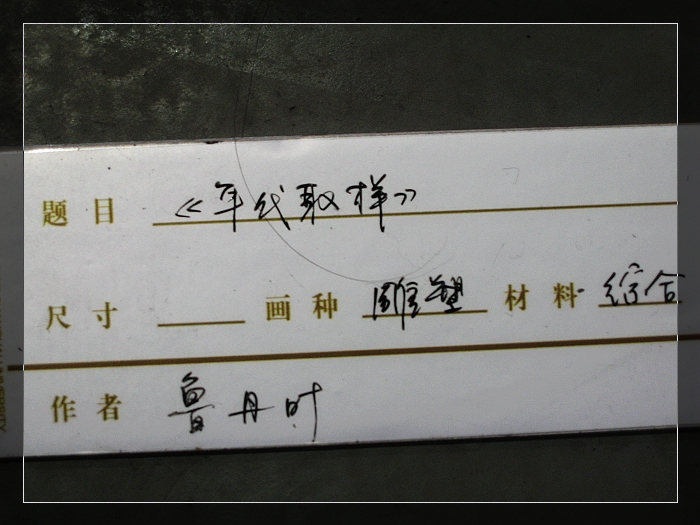 题目 《年代取样》
尺寸 画种 雕塑 材料 综合
作者 鲁丹叶